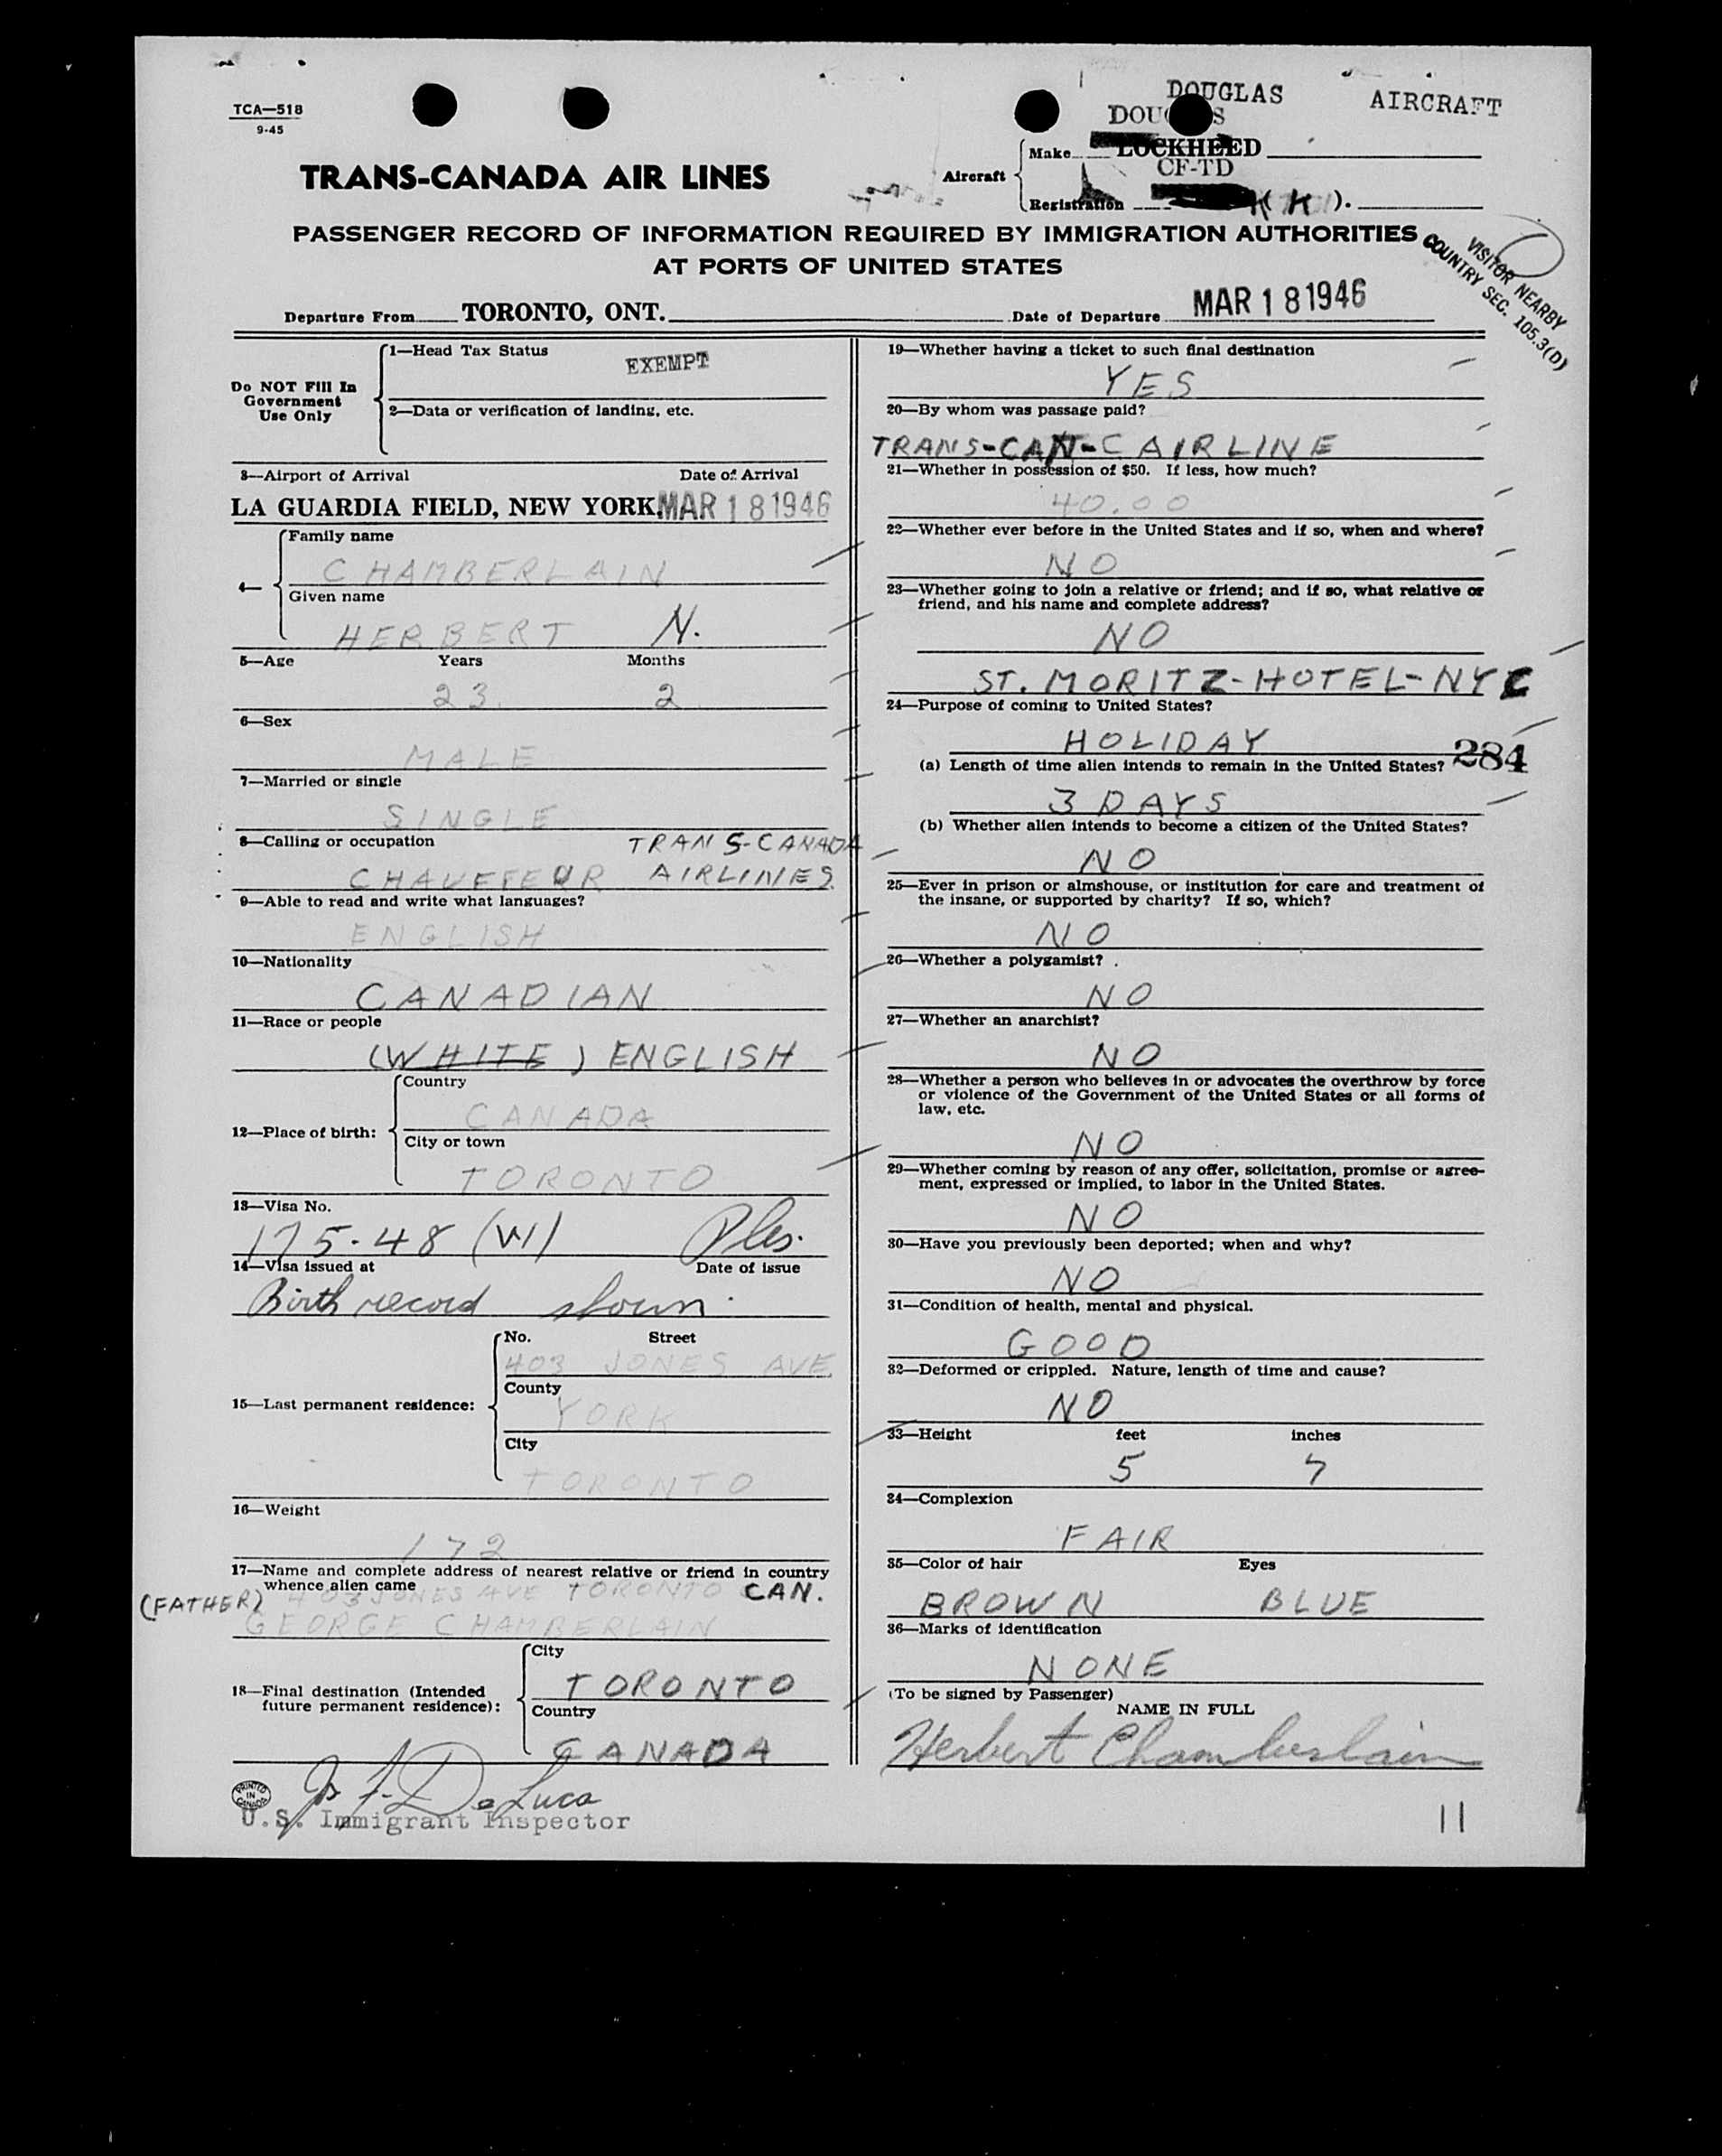 TCA—518
9-45
DOUGLAS AIRCRAFT
TRANS-CANADA AIR LINES
Aircraft
Make LOCKHEED
CF-TD
Registration K ( K ).
PASSENGER RECORD OF INFORMATION REQUIRED BY IMMIGRATION AUTHORITIES
AT PORTS OF UNITED STATES
VISITOR NEARBY
COUNTRY SEC. 105.3(D)
Departure From TORONTO, ONT. Date of Departure MAR 18 1946
Do NOT Fill In
Government
Use Only
1—Head Tax Status EXEMPT
2—Data or verification of landing, etc.
3—Airport of Arrival Date of Arrival
LA GUARDIA FIELD, NEW YORK MAR 18 1946
4—
Family name
CHAMBERLAIN
Given name
HERBERT N.
5—Age Years Months
23 2
6—Sex
MALE
7—Married or single
SINGLE
8—Calling or occupation TRANS-CANADA
CHAUFFEUR AIRLINES
9—Able to read and write what languages?
ENGLISH
10—Nationality
CANADIAN
11—Race or people
(WHITE) ENGLISH
12—Place of birth:
Country
CANADA
City or town
TORONTO
13—Visa No.
175-48 (W)
14—Visa issued at Date of issue
Birth record shown
15—Last permanent residence:
No. Street
403 JONES AVE
County
YORK
City
TORONTO
16—Weight
172
17—Name and complete address of nearest relative or friend in country
whence alien came
(FATHER) 403 JONES AVE TORONTO CAN.
GEORGE CHAMBERLAIN
18—Final destination (Intended
future permanent residence):
City
TORONTO
Country
CANADA
PRINTED IN CANADA
De Luca
U.S. Immigrant Inspector
19—Whether having a ticket to such final destination
YES
20—By whom was passage paid?
TRANS-CAN-C AIRLINE
21—Whether in possession of $50. If less, how much?
40.00
22—Whether ever before in the United States and if so, when and where?
NO
23—Whether going to join a relative or friend; and if so, what relative or
friend, and his name and complete address?
NO
ST. MORITZ-HOTEL-NYC
24—Purpose of coming to United States?
HOLIDAY
284
(a) Length of time alien intends to remain in the United States?
3 DAYS
(b) Whether alien intends to become a citizen of the United States?
NO
25—Ever in prison or almshouse, or institution for care and treatment of
the insane, or supported by charity? If so, which?
NO
26—Whether a polygamist?
NO
27—Whether an anarchist?
NO
28—Whether a person who believes in or advocates the overthrow by force
or violence of the Government of the United States or all forms of
law, etc.
NO
29—Whether coming by reason of any offer, solicitation, promise or agree-
ment, expressed or implied, to labor in the United States.
NO
30—Have you previously been deported; when and why?
NO
31—Condition of health, mental and physical.
GOOD
32—Deformed or crippled. Nature, length of time and cause?
NO
33—Height feet inches
5 7
34—Complexion
FAIR
35—Color of hair Eyes
BROWN BLUE
36—Marks of identification
NONE
(To be signed by Passenger)
NAME IN FULL
Herbert Chamberlain
11